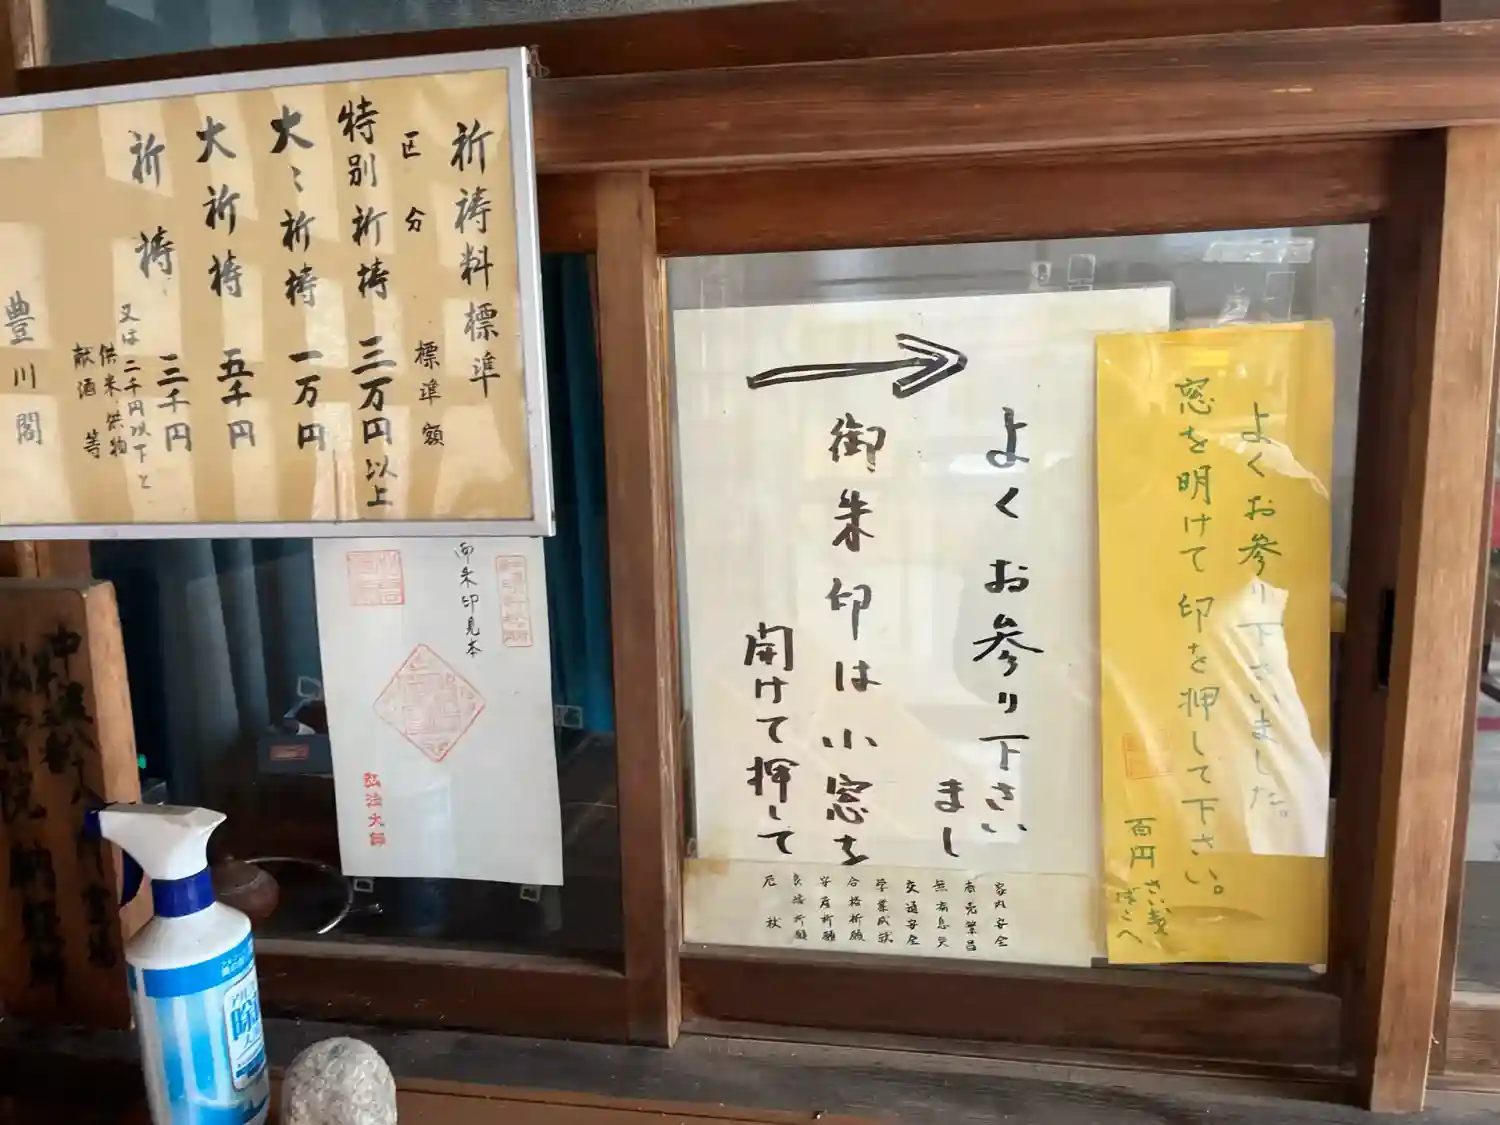 祈祷料標準
区分 標準額
特別祈祷 三万円以上
大〻祈祷 一万円
大祈祷 五千円
祈祷 三千円
又は二千円以下と
供米、供物
献酒等
豊川閣
御朱印見本
弘法大師
よくお参り下さい
まし
御朱印は小窓を
開けて押して
家内安全
商売繁昌
無病息災
交通安全
学業成就
合格祈願
安産祈願
良縁祈願
厄杖
よくお参り下さいました。
窓を明けて印を押して下さい。
百円さい銭
ばこへ